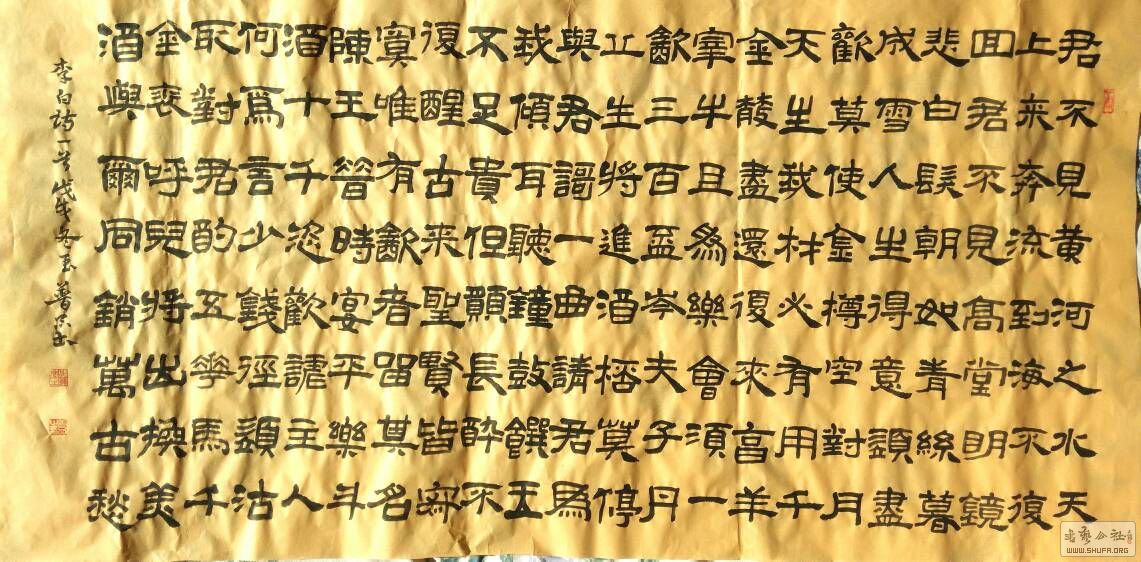 君不見黃河之水天
上来奔流到海不復
回君不見高堂明鏡
悲白髮朝如青絲暮
成雪人生得意須盡
歡莫使金樽空對月
天生我材必有用千
金散盡還復來烹羊
宰牛且為樂會須一
飲三百盃岑夫子丹
丘生將進酒桮莫停
與君謌一曲請君為
我傾耳聽鐘鼓饌玉
不足貴但願長醉不
復醒古来聖賢皆寂
寞唯有飲者留其名
陳王昔時宴平樂斗
酒十千恣歡謔主人
何為言少錢徑須沽
取對君酌五花馬千
金裘呼兒將出換美
酒與爾同銷萬古愁
李白詩一首戊戌冬
WWW.SHUFA.ORG